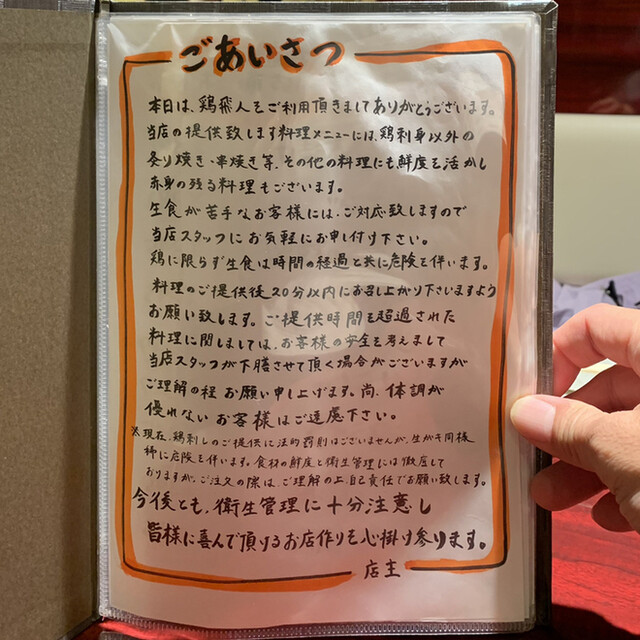 ごあいさつ
本日は、鶏飛人をご利用頂きましてありがとうございます。
当店の提供致します料理メニューには、鶏刺身以外の
炙り焼き・串焼き等、その他の料理にも鮮度を活かし
赤身の残る料理もございます。
生食が苦手なお客様には、ご対応致しますので
当店スタッフにお気軽にお申し付け下さい。
鶏に限らず生食は時間の経過と共に危険を伴います。
料理のご提供後20分以内にお召し上がり下さいますよう
お願い致します。ご提供時間を超過された
料理に関しましては、お客様の安全を考えまして
当店スタッフが下膳させて頂く場合がございますが
ご理解の程 お願い申し上げます。尚、体調が
優れない お客様はご遠慮下さい。
※現在、鶏刺しのご提供に法的罰則はございませんが、生ガキ同様
稀に危険を伴います。食材の鮮度と衛生管理には徹底して
おりますが、ご注文の際は、ご理解の上、自己責任でお願い致します。
今後とも、衛生管理に十分注意し
皆様に喜んで頂けるお店作りを心掛け参ります。
店主